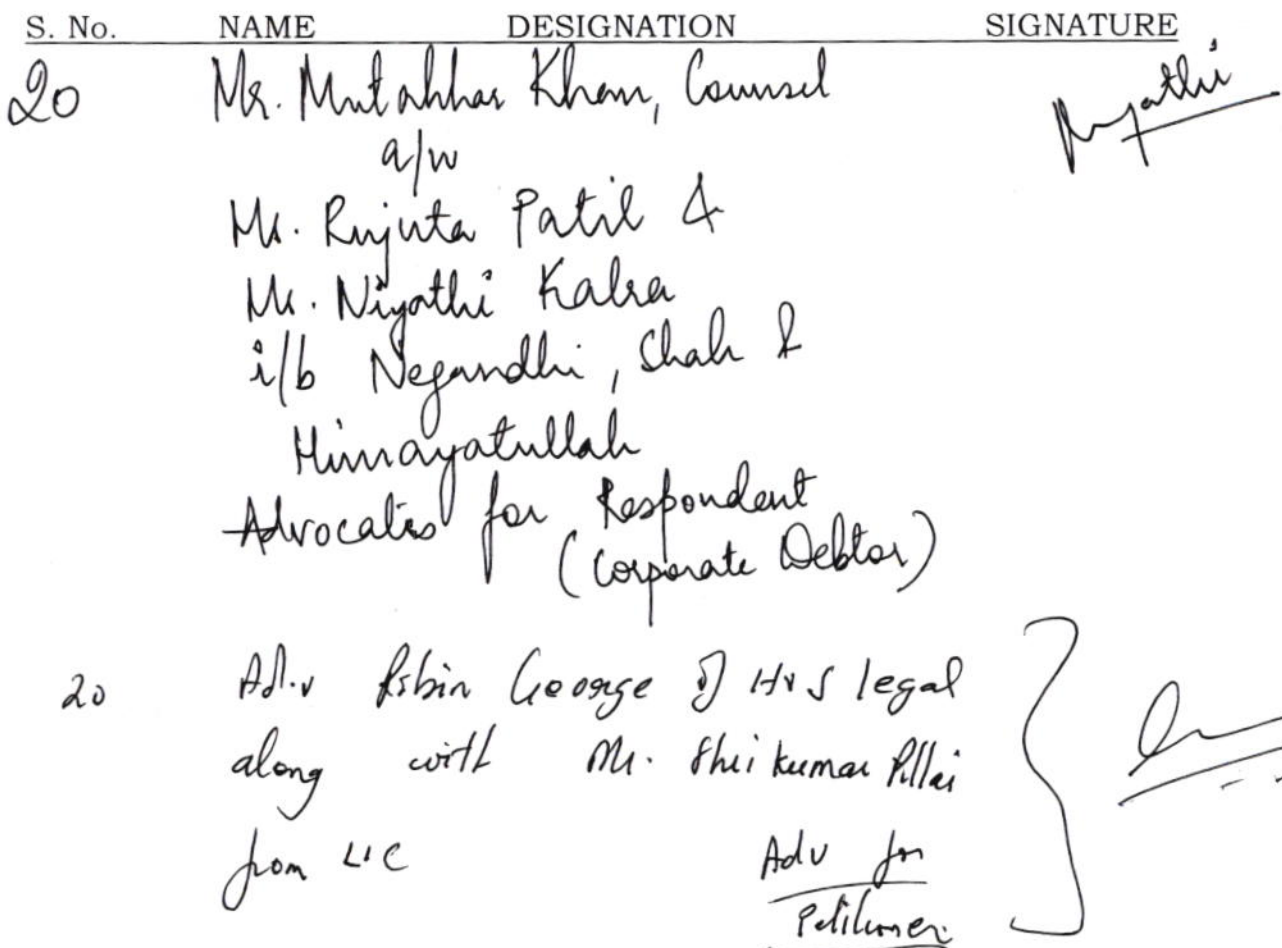 S. No. NAME DESIGNATION SIGNATURE
20 Mr. Mutahhar Khan, Counsel Niyathi
a/w
Ms. Rujuta Patil &
Ms. Niyathi Kalra
i/b Negandhi, Shah &
Himayatullah
Advocates for Respondent
(Corporate Debtor)
20 Adv Robin George of HVS legal
along with Mr. Shrikumar Pillai
from LIC Adv for
Petitioner